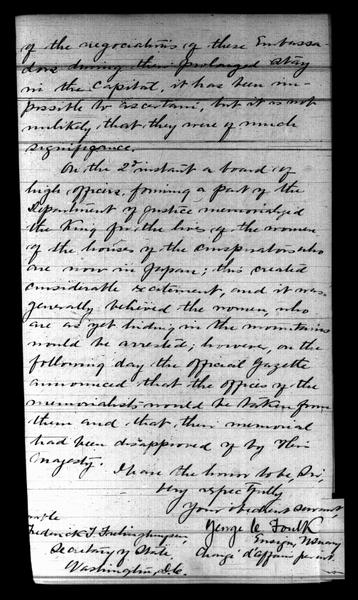 of the negociations of these Embassa-
dors during their prolonged stay
in the Capital, it has been im-
possible to ascertain, but it is not
unlikely that they were of much
significance.
On the 2d instant a board of
high officers, forming a part of the
Department of Justice memorialized
the King for the lives of the women
of the houses of the conspirators who
are now in Japan; this created
considerable excitement, and it was
generally believed the women, who
are as yet hiding in the mountains
would be arrested; however, on the
following day the official Gazette
announced that the offices of the
memorialists would be taken from
them and that their memorial
had been disapproved of by His
Majesty.
I have the honor to be, Sir,
Very respectfully
Your obedient servant
George C. Foulk
Ensign, U.S. Navy
Chargé d'affaires
Frederick T. Frelinghuysen,
Secretary of State,
Washington, D.C.